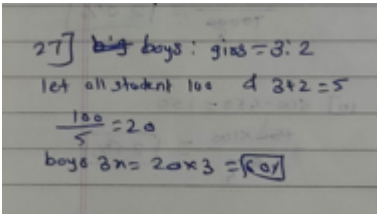 27] boys : gias = 3:2
let all student 100 & 3+2=5
100/5 = 20
boys 3x = 20×3 = 60%